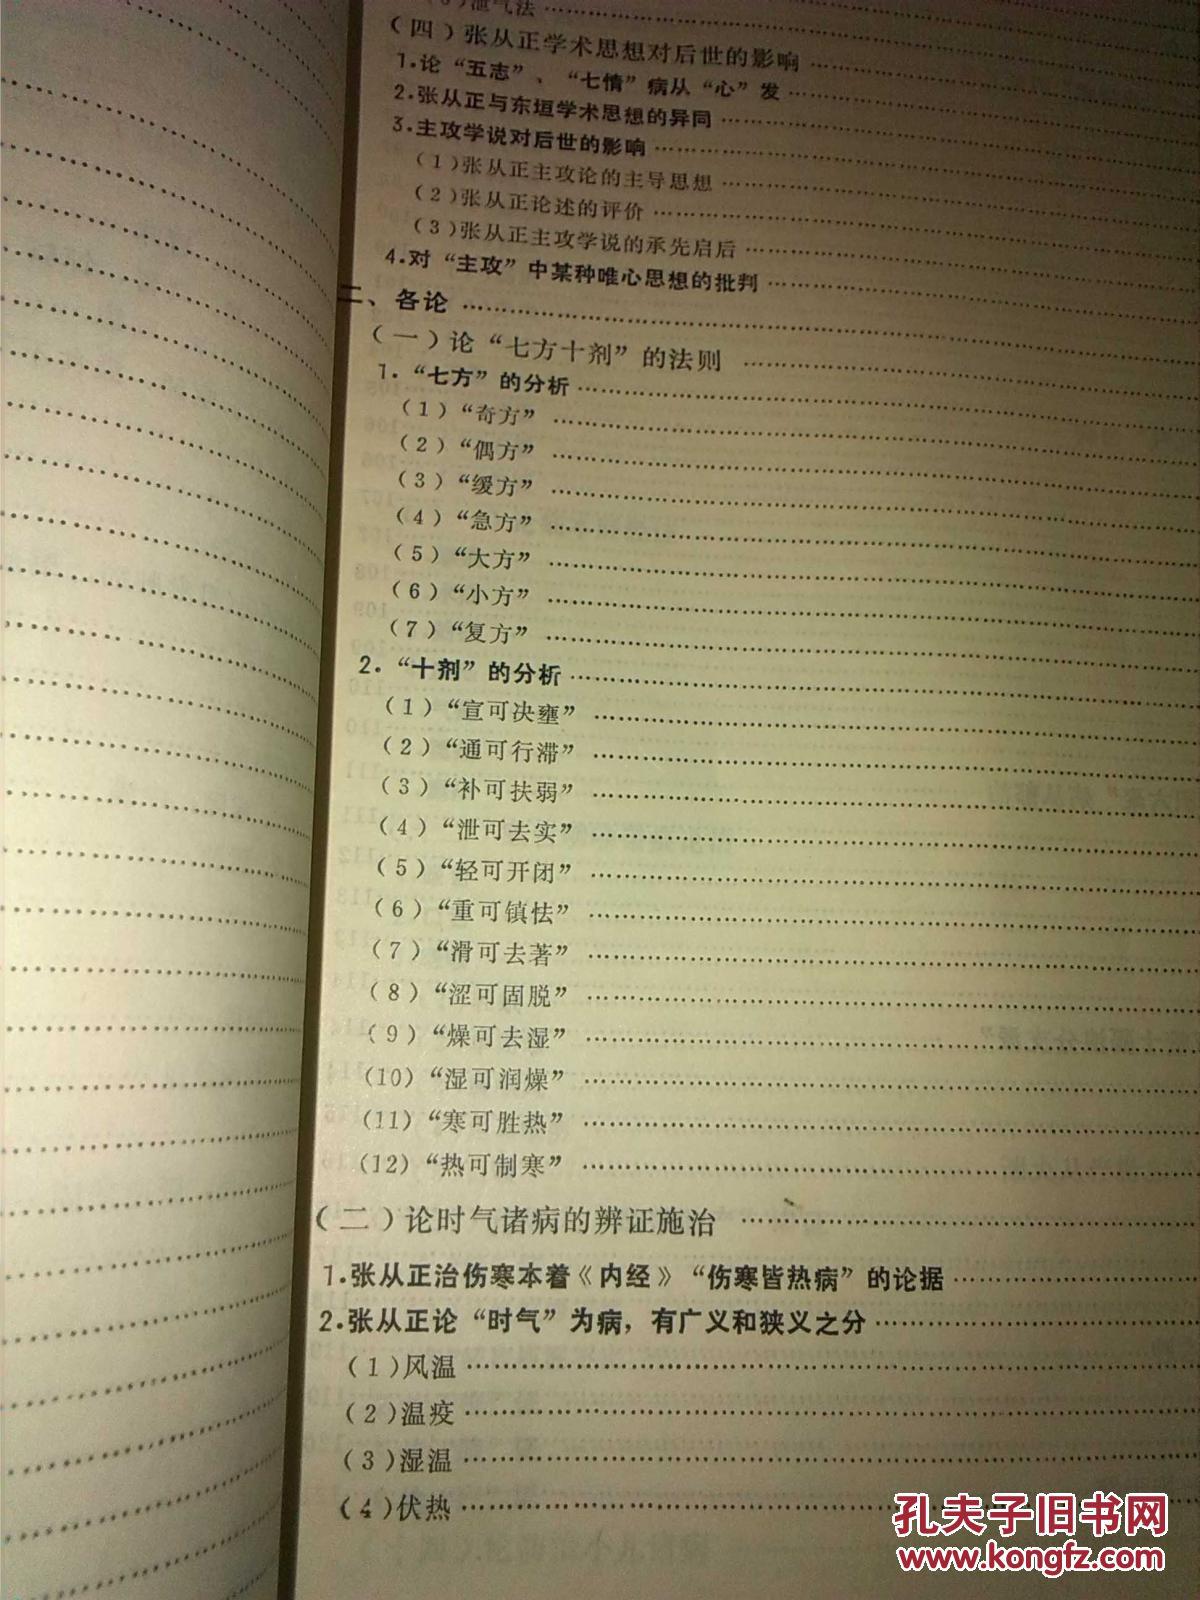 (3)泄气法
(四)张从正学术思想对后世的影响
1.论“五志”、“七情”病从“心”发
2.张从正与东垣学术思想的异同
3.主攻学说对后世的影响
(1)张从正主攻论的主导思想
(2)张从正论述的评价
(3)张从正主攻学说的承先启后
4.对“主攻”中某种唯心思想的批判
二、各论
(一)论“七方十剂”的法则
1.“七方”的分析
(1)“奇方”
(2)“偶方”
(3)“缓方”
(4)“急方”
(5)“大方”
(6)“小方”
(7)“复方”
2.“十剂”的分析
(1)“宣可决壅”
(2)“通可行滞”
(3)“补可扶弱”
(4)“泄可去实”
(5)“轻可开闭”
(6)“重可镇怯”
(7)“滑可去著”
(8)“涩可固脱”
(9)“燥可去湿”
(10)“湿可润燥”
(11)“寒可胜热”
(12)“热可制寒”
(二)论时气诸病的辨证施治
1.张从正治伤寒本着《内经》“伤寒皆热病”的论据
2.张从正论“时气”为病，有广义和狭义之分
(1)风温
(2)温疫
(3)湿温
(4)伏热
孔夫子旧书网
www.kongfz.com